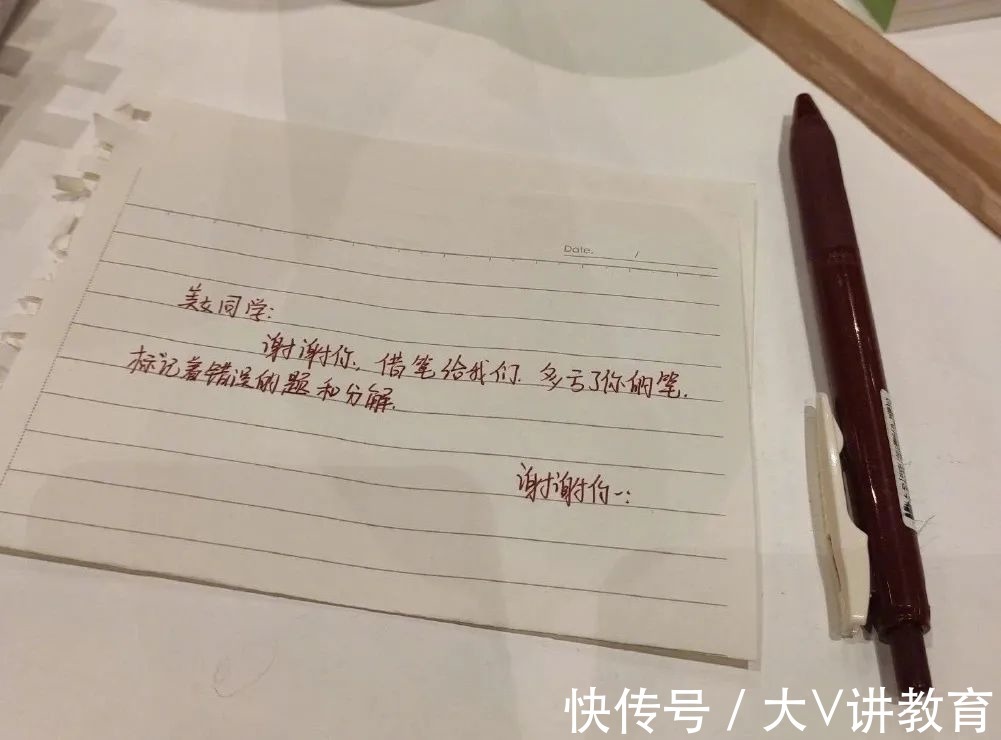 Date. /
美女同学:
谢谢你,借笔给我们.多亏了你的笔.
标记着错误的题和分解.
谢谢你一:
快传号 / 大V讲教育